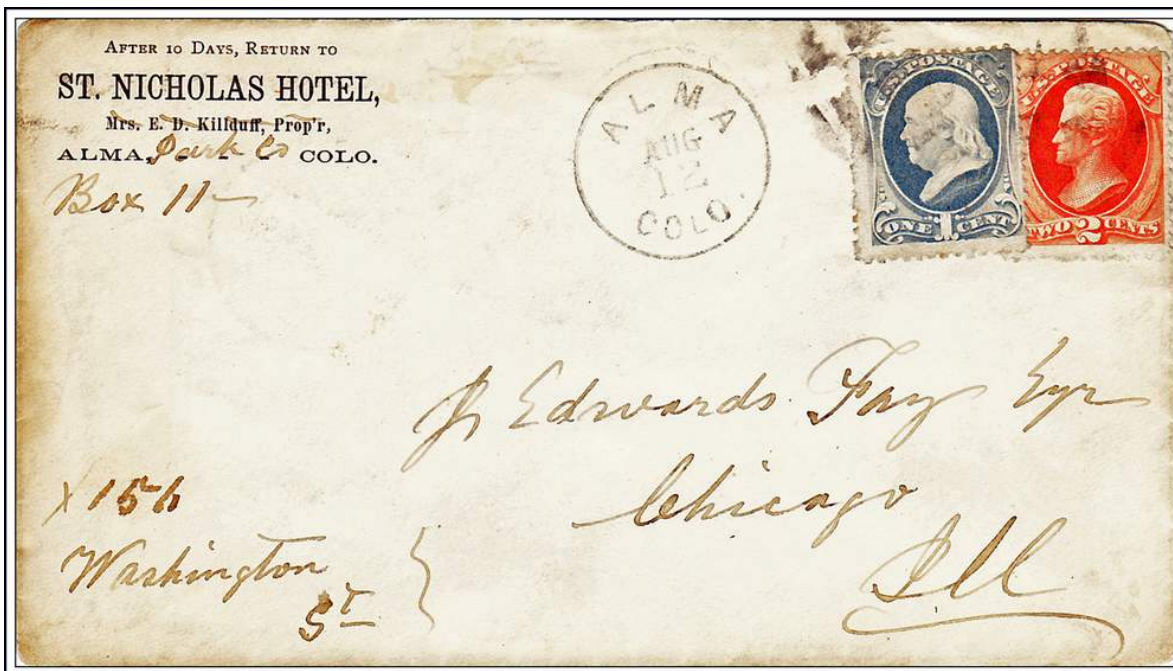 AFTER 10 DAYS, RETURN TO
ST. NICHOLAS HOTEL,
Mrs. E. D. Killduff, Prop'r,
ALMA, Park Co COLO.
Box 11
ALMA
AUG
12
COLO.
U.S. POSTAGE
ONE 1 CENT
U.S. POSTAGE
TWO 2 CENTS
Edwards Fay Esqr
Chicago
Ill
Washington
St